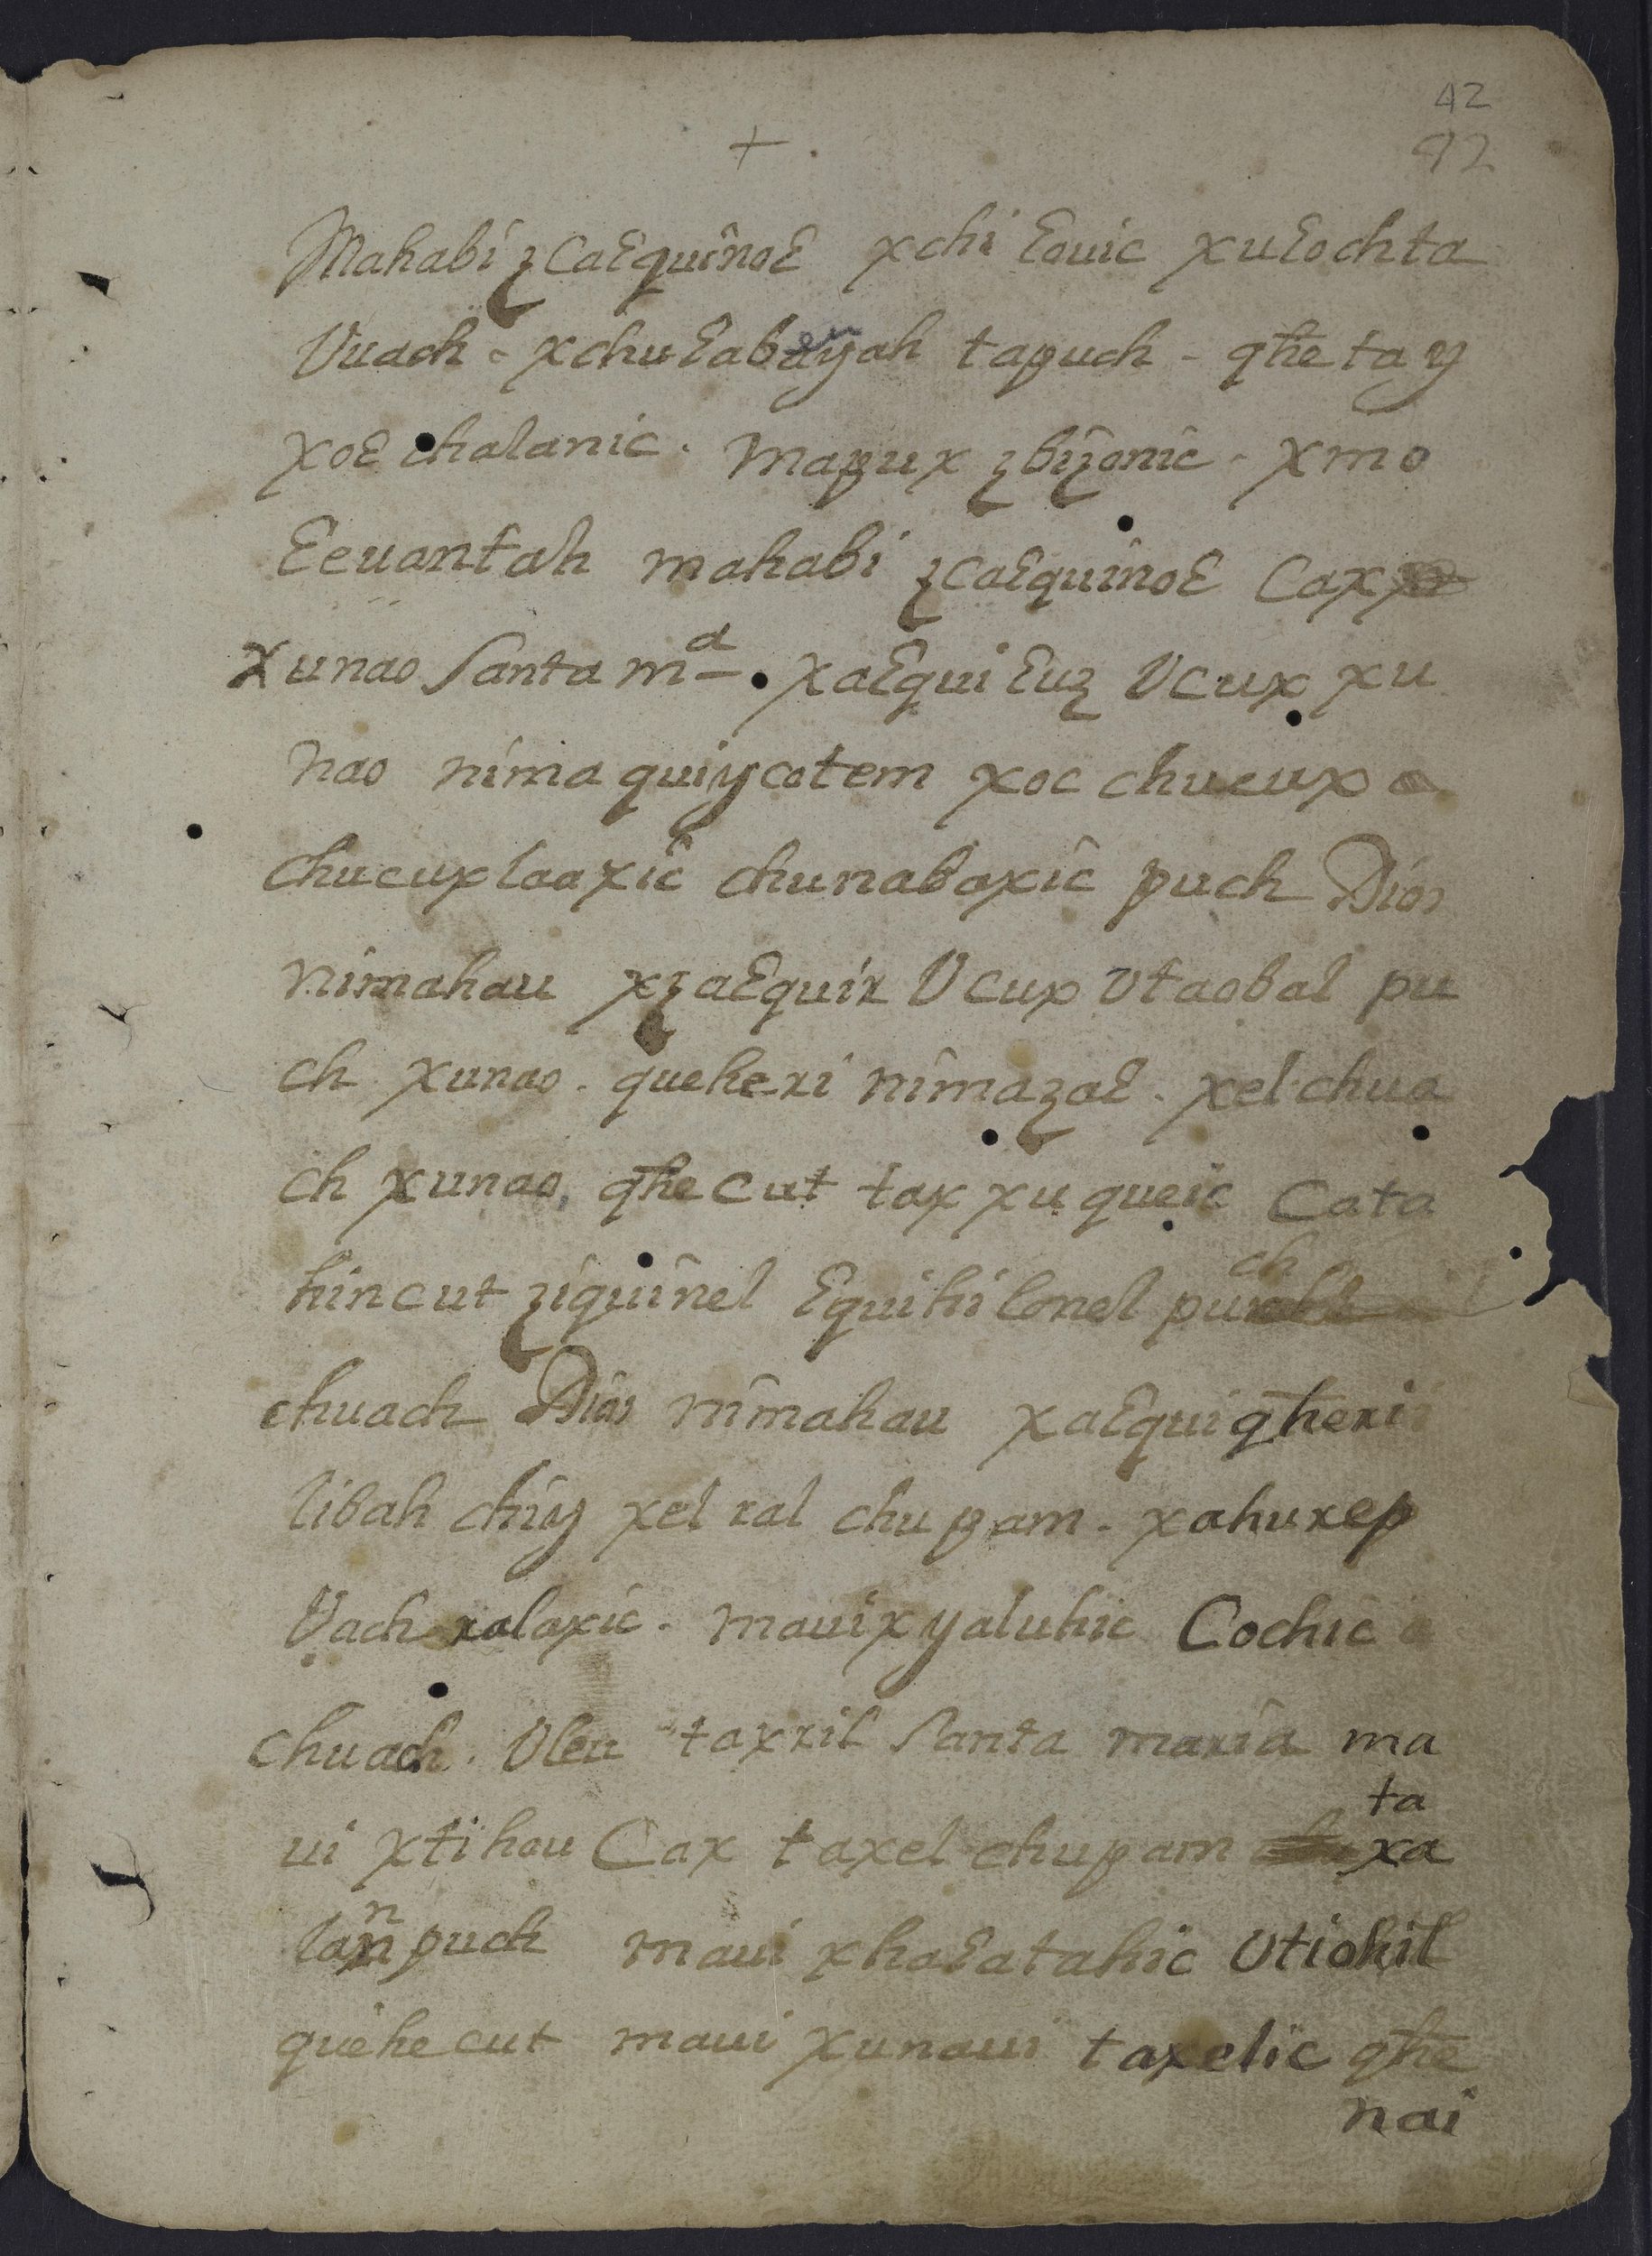 42
92
+
Mahabi ꜫCaɛquinoɛ xchi ɛouic xuɛochta
Vuach - xchuɛabayah tapuch - qħe ta y
xoɛ chalanic. mapux ꜫbiꜫonic - xmo
ɛeuantah mahabi ꜫcaɛquinoɛ Cax
xunao Santa mᵃ. xaɛqui ɛuꜫ Vcux xu
nao nima quiycotem xoc chucux
chucuxlaaxic chunabaxic puch Dios
nimahau xꜫaɛquir Vcux vtaobal pu
ch xunao. queheri nimaꜫaɛ. xel chua
ch xunao, qħe cut tax xuqueic Cata
hin cut ꜫiquinel ɛquihilonel puch
chuach Dios nimahau xaɛqui qħeri
libah chiy xel ral chupam. xahurep
Vach ralaxic. maui x yaluhic Cochic
chuach. Uleu taxril Santa maria ma
ui xtihou Cax taxel chupam ta xa
lan puch maui xhaɛatahic Utiohil
quehe cut maui xunaui taxelic qħe
nai